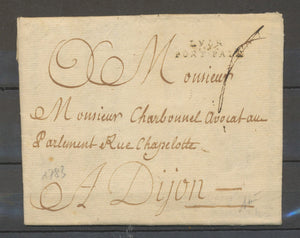 Monsieur
LYON
PORT PAYÉ
Monsieur Charbonnel Avocat au
Parlement Rue Chapelotte
A Dijon
1783